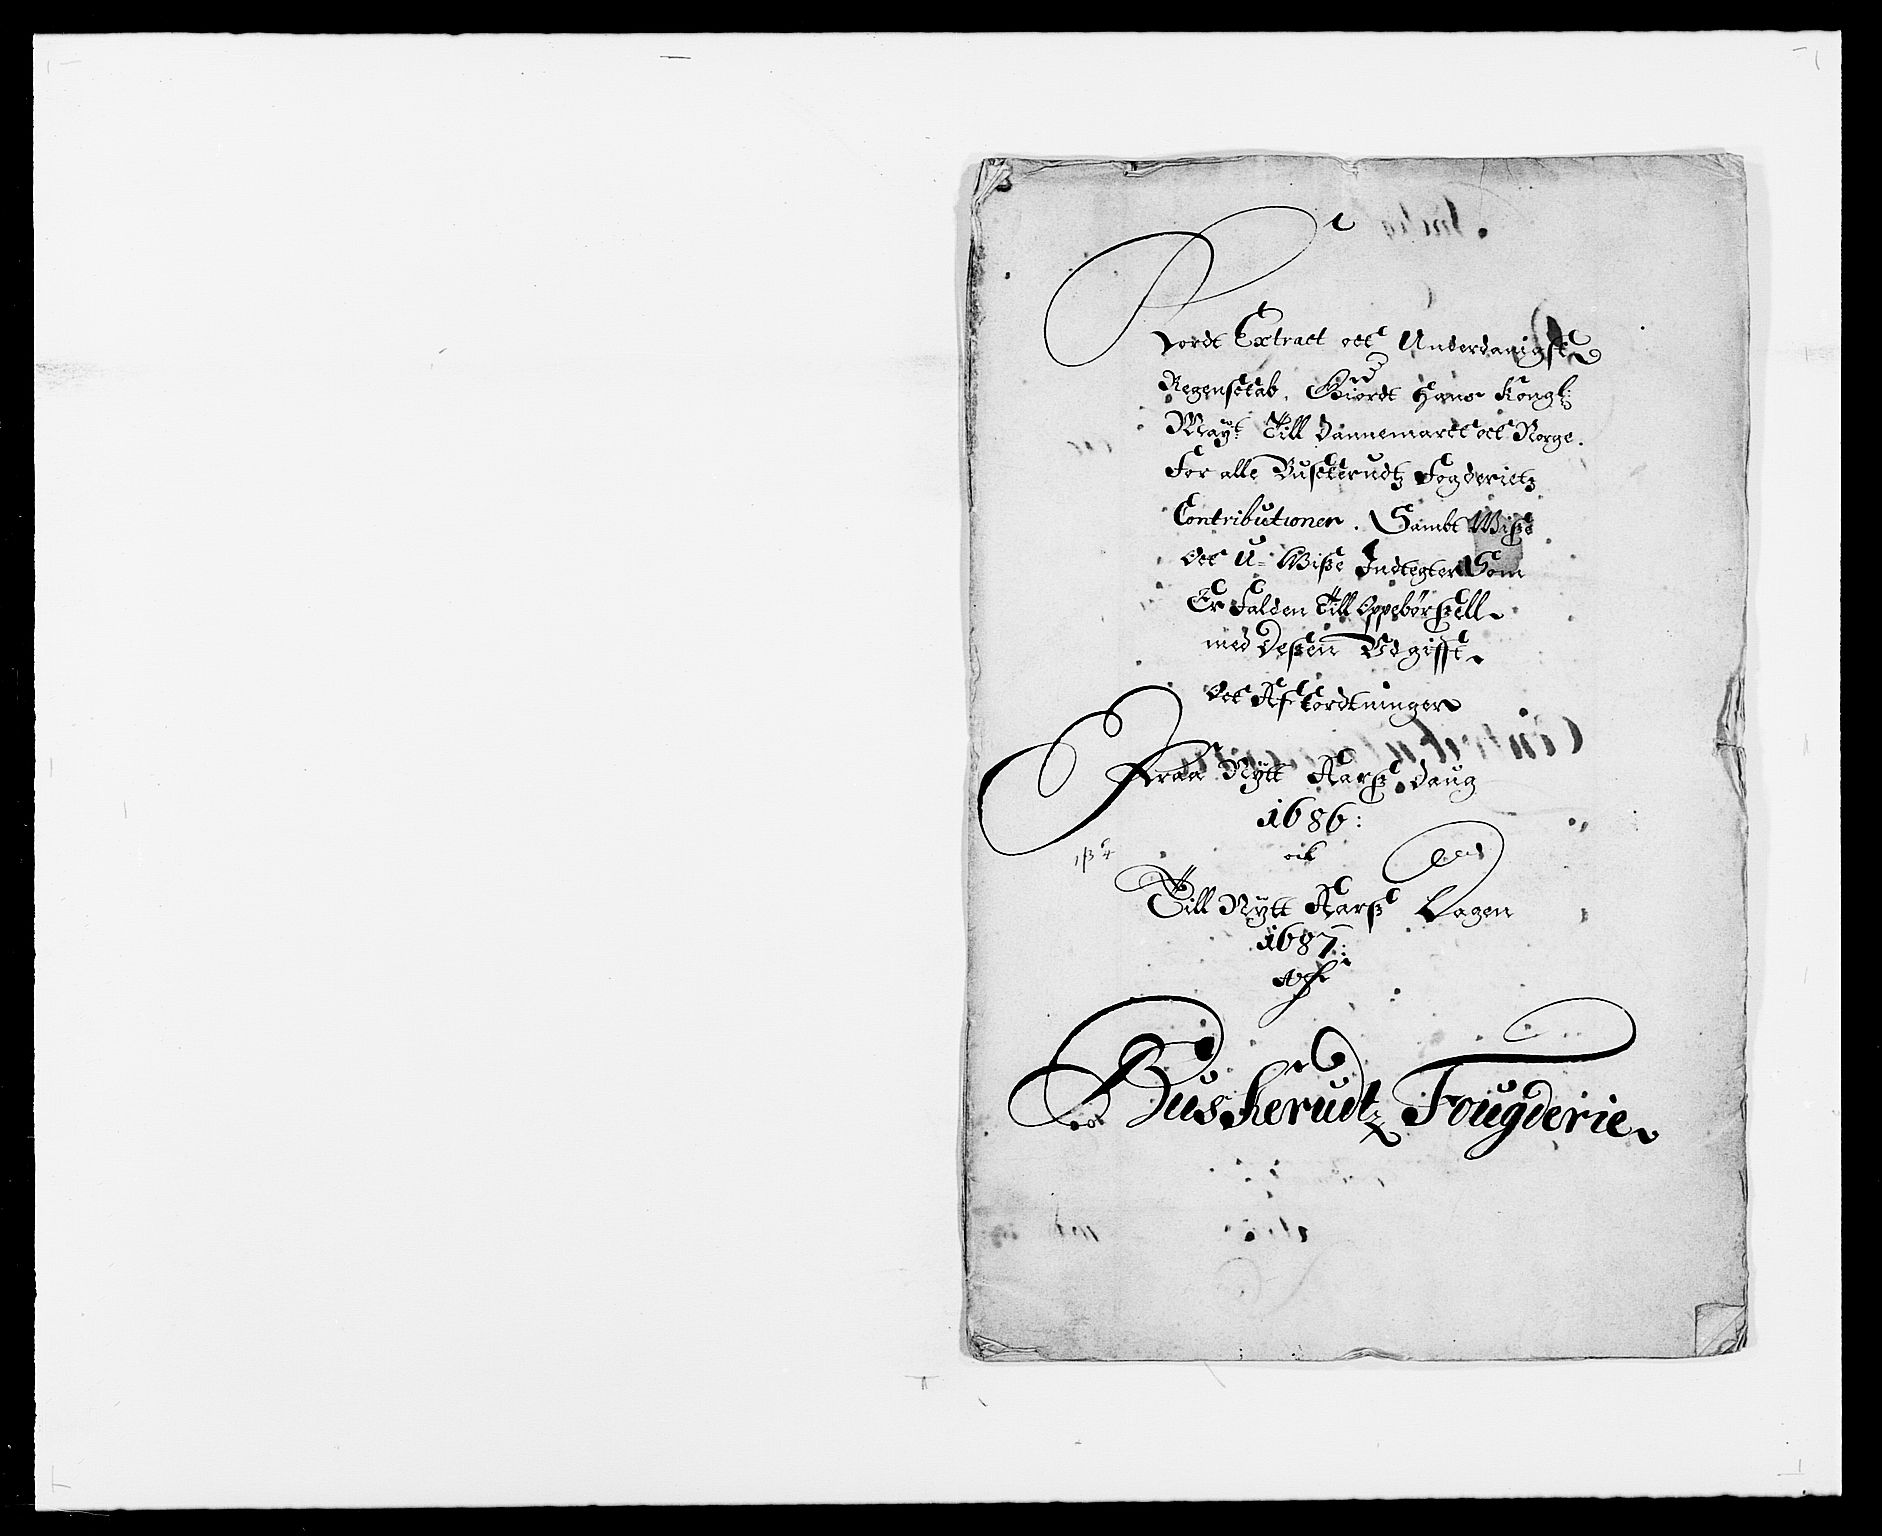 Kordt Extract och Underdanigste
Regenschab, Giordt Hans Kongl:
Mayt: Till Dannemarck och Norge.
For alle Buscherudtz Fogderietz
Contributioner. Sambt Wisse
Och U=Wisse Indtegter Som
Er Falden Till Oppebørssell
med Dessen Udgifft
Och Afkordtninger
Fraa Nytt Aarss Daug
1686:
och
Till Nytt Aarss Dagen
1687:
Af
Buskerudtz Fougderie